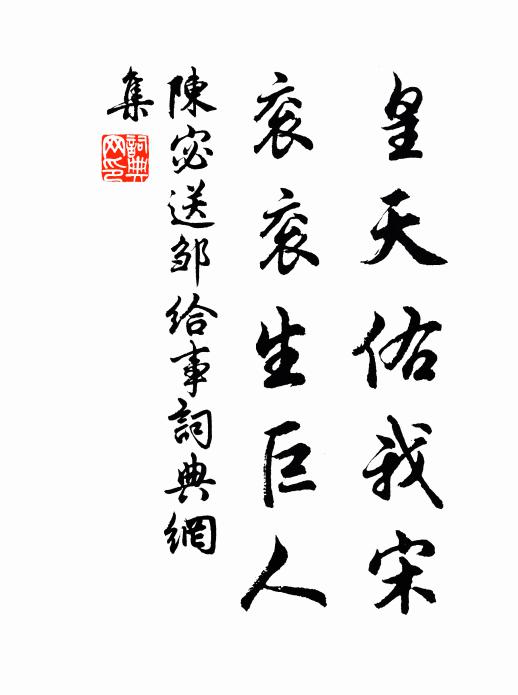 皇天佑我宋
衮衮生巨人
陳宓送邹给事詞典網
集
詞典
网印